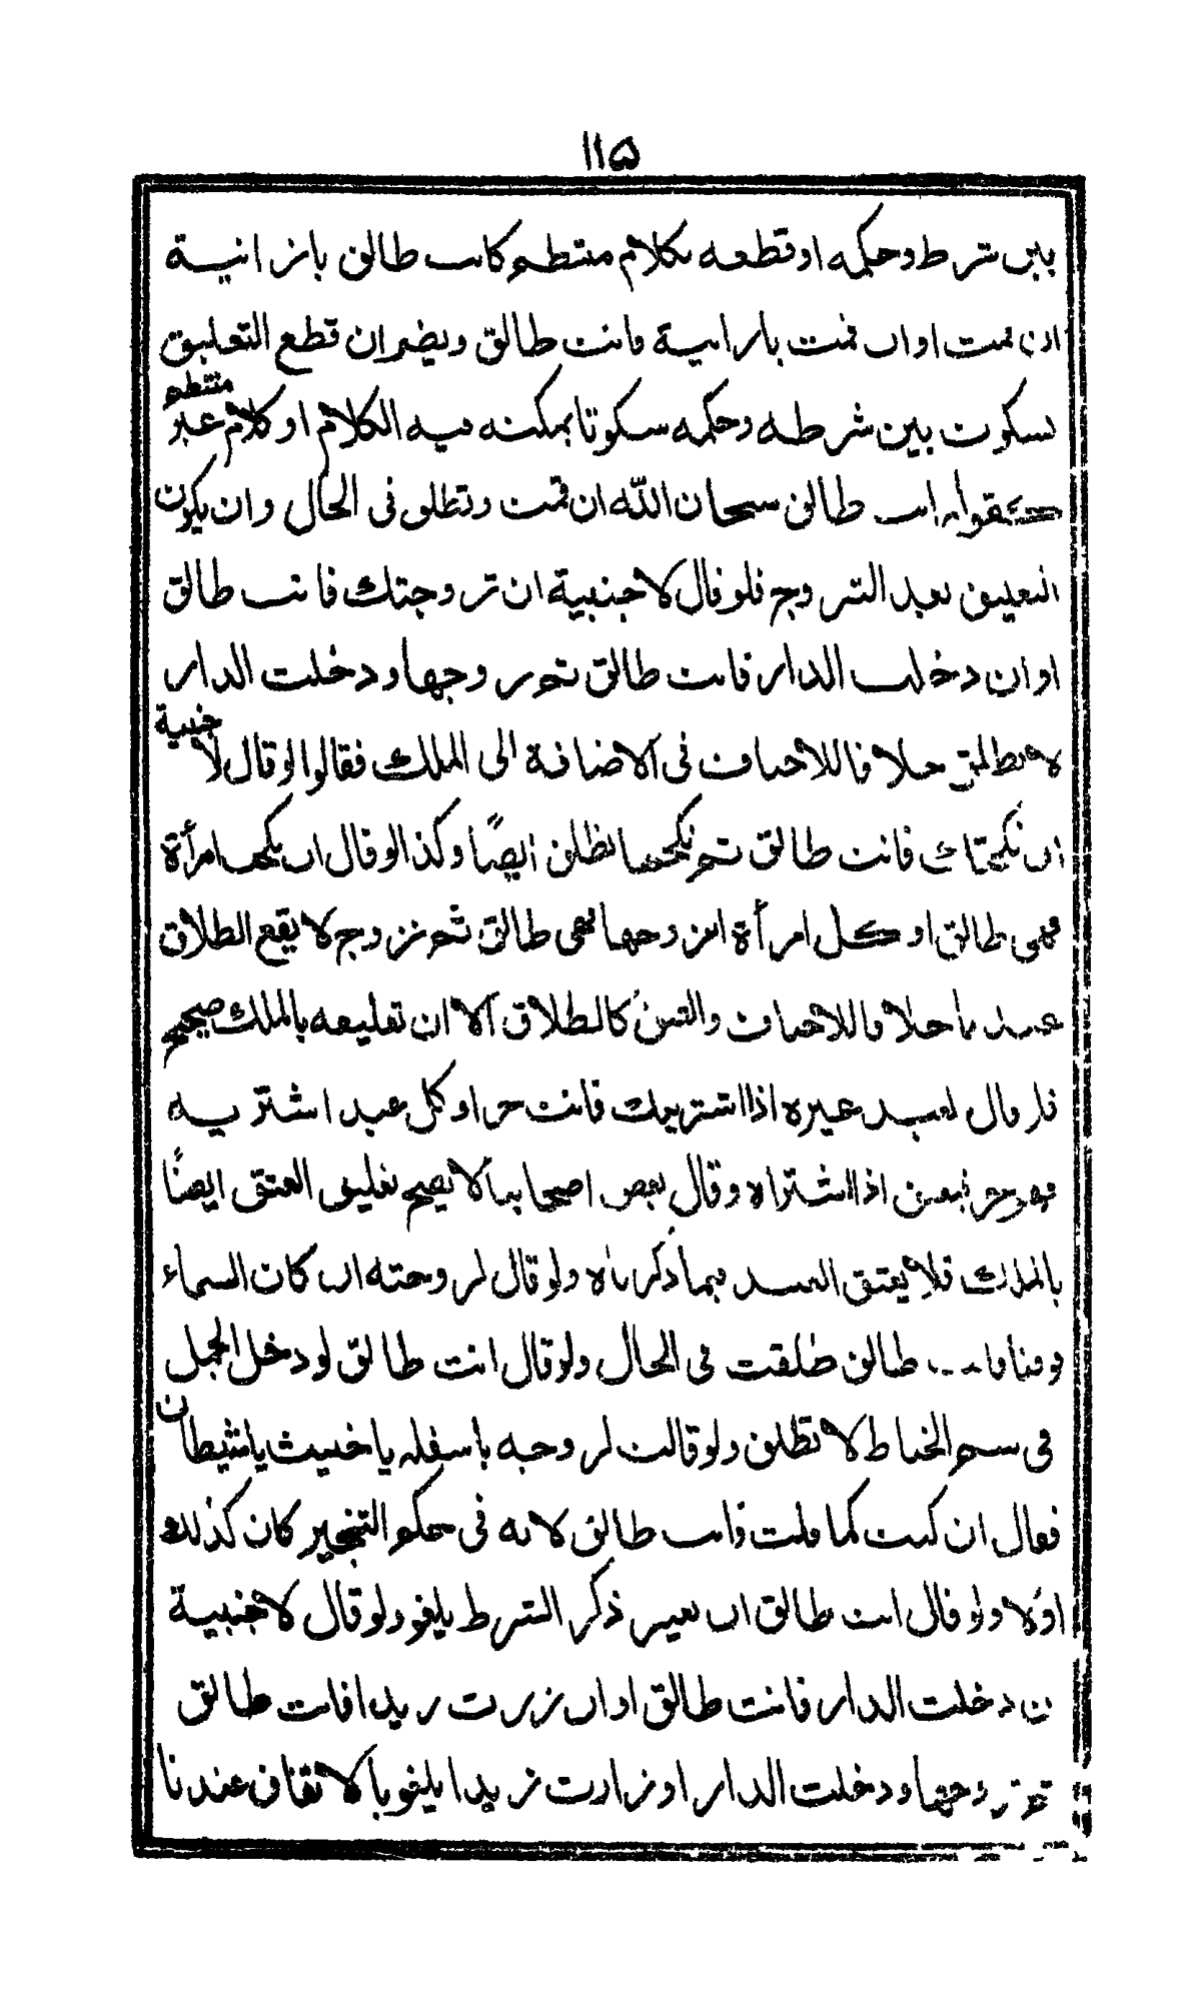 ١١٥
بين شرط وحكمه او قطعه بكلام منتظم كانت طالق يا زانية
ان قمت او ان قمت يا زانية فانت طالق ويضر ان قطع التعليق
بسكوت بين شرطه وحكمه سكوتا يمكنه فيه الكلام او كلام غير منتظم
كقوله انت طالق سبحان الله ان قمت وتطلق في الحال وان يكون
التعليق بعد التزوج فلو قال لاجنبية ان تزوجتك فانت طالق
او ان دخلت الدار فانت طالق ثم تزوجها ودخلت الدار
لا تطلق خلافا للاحناف في الاضافة الى الملك فقالوا لو قال لاجنبية
ان نكحتك فانت طالق ثم نكحها تطلق ايضًا وكذا لو قال ان نكحت امرأة
فهي طالق او كل امرأة اتزوجها فهي طالق ثم تزوج لا يقع الطلاق
عندنا خلافا للاحناف والعتق كالطلاق الا ان تعليقه بالملك صحيح
فلو قال لعبد غيره اذا اشتريتك فانت حر او كل عبد اشتريه
فهو حر فيعتق اذا اشتراه وقال بعض اصحابنا لا يصح تعليق العتق ايضًا
بالملك فلا يعتق العبد فيما ذكرناه ولو قال لزوجته ان كان السماء
فوقنا فانت طالق طلقت في الحال ولو قال انت طالق لو دخل الجمل
في سم الخياط لا تطلق ولو قالت لزوجها يا سفله يا خبيث يا شيطان
فقال ان كنت كما قلت فانت طالق لانه في حكم التنجيز كان كذلك
اولا ولو قال انت طالق ان بغير ذكر الشرط يلغو ولو قال لاجنبية
ان دخلت الدار فانت طالق او ان زرت زيدا فانت طالق
ثم تزوجها ودخلت الدار او زارت زيدا يلغو بالاتفاق عندنا